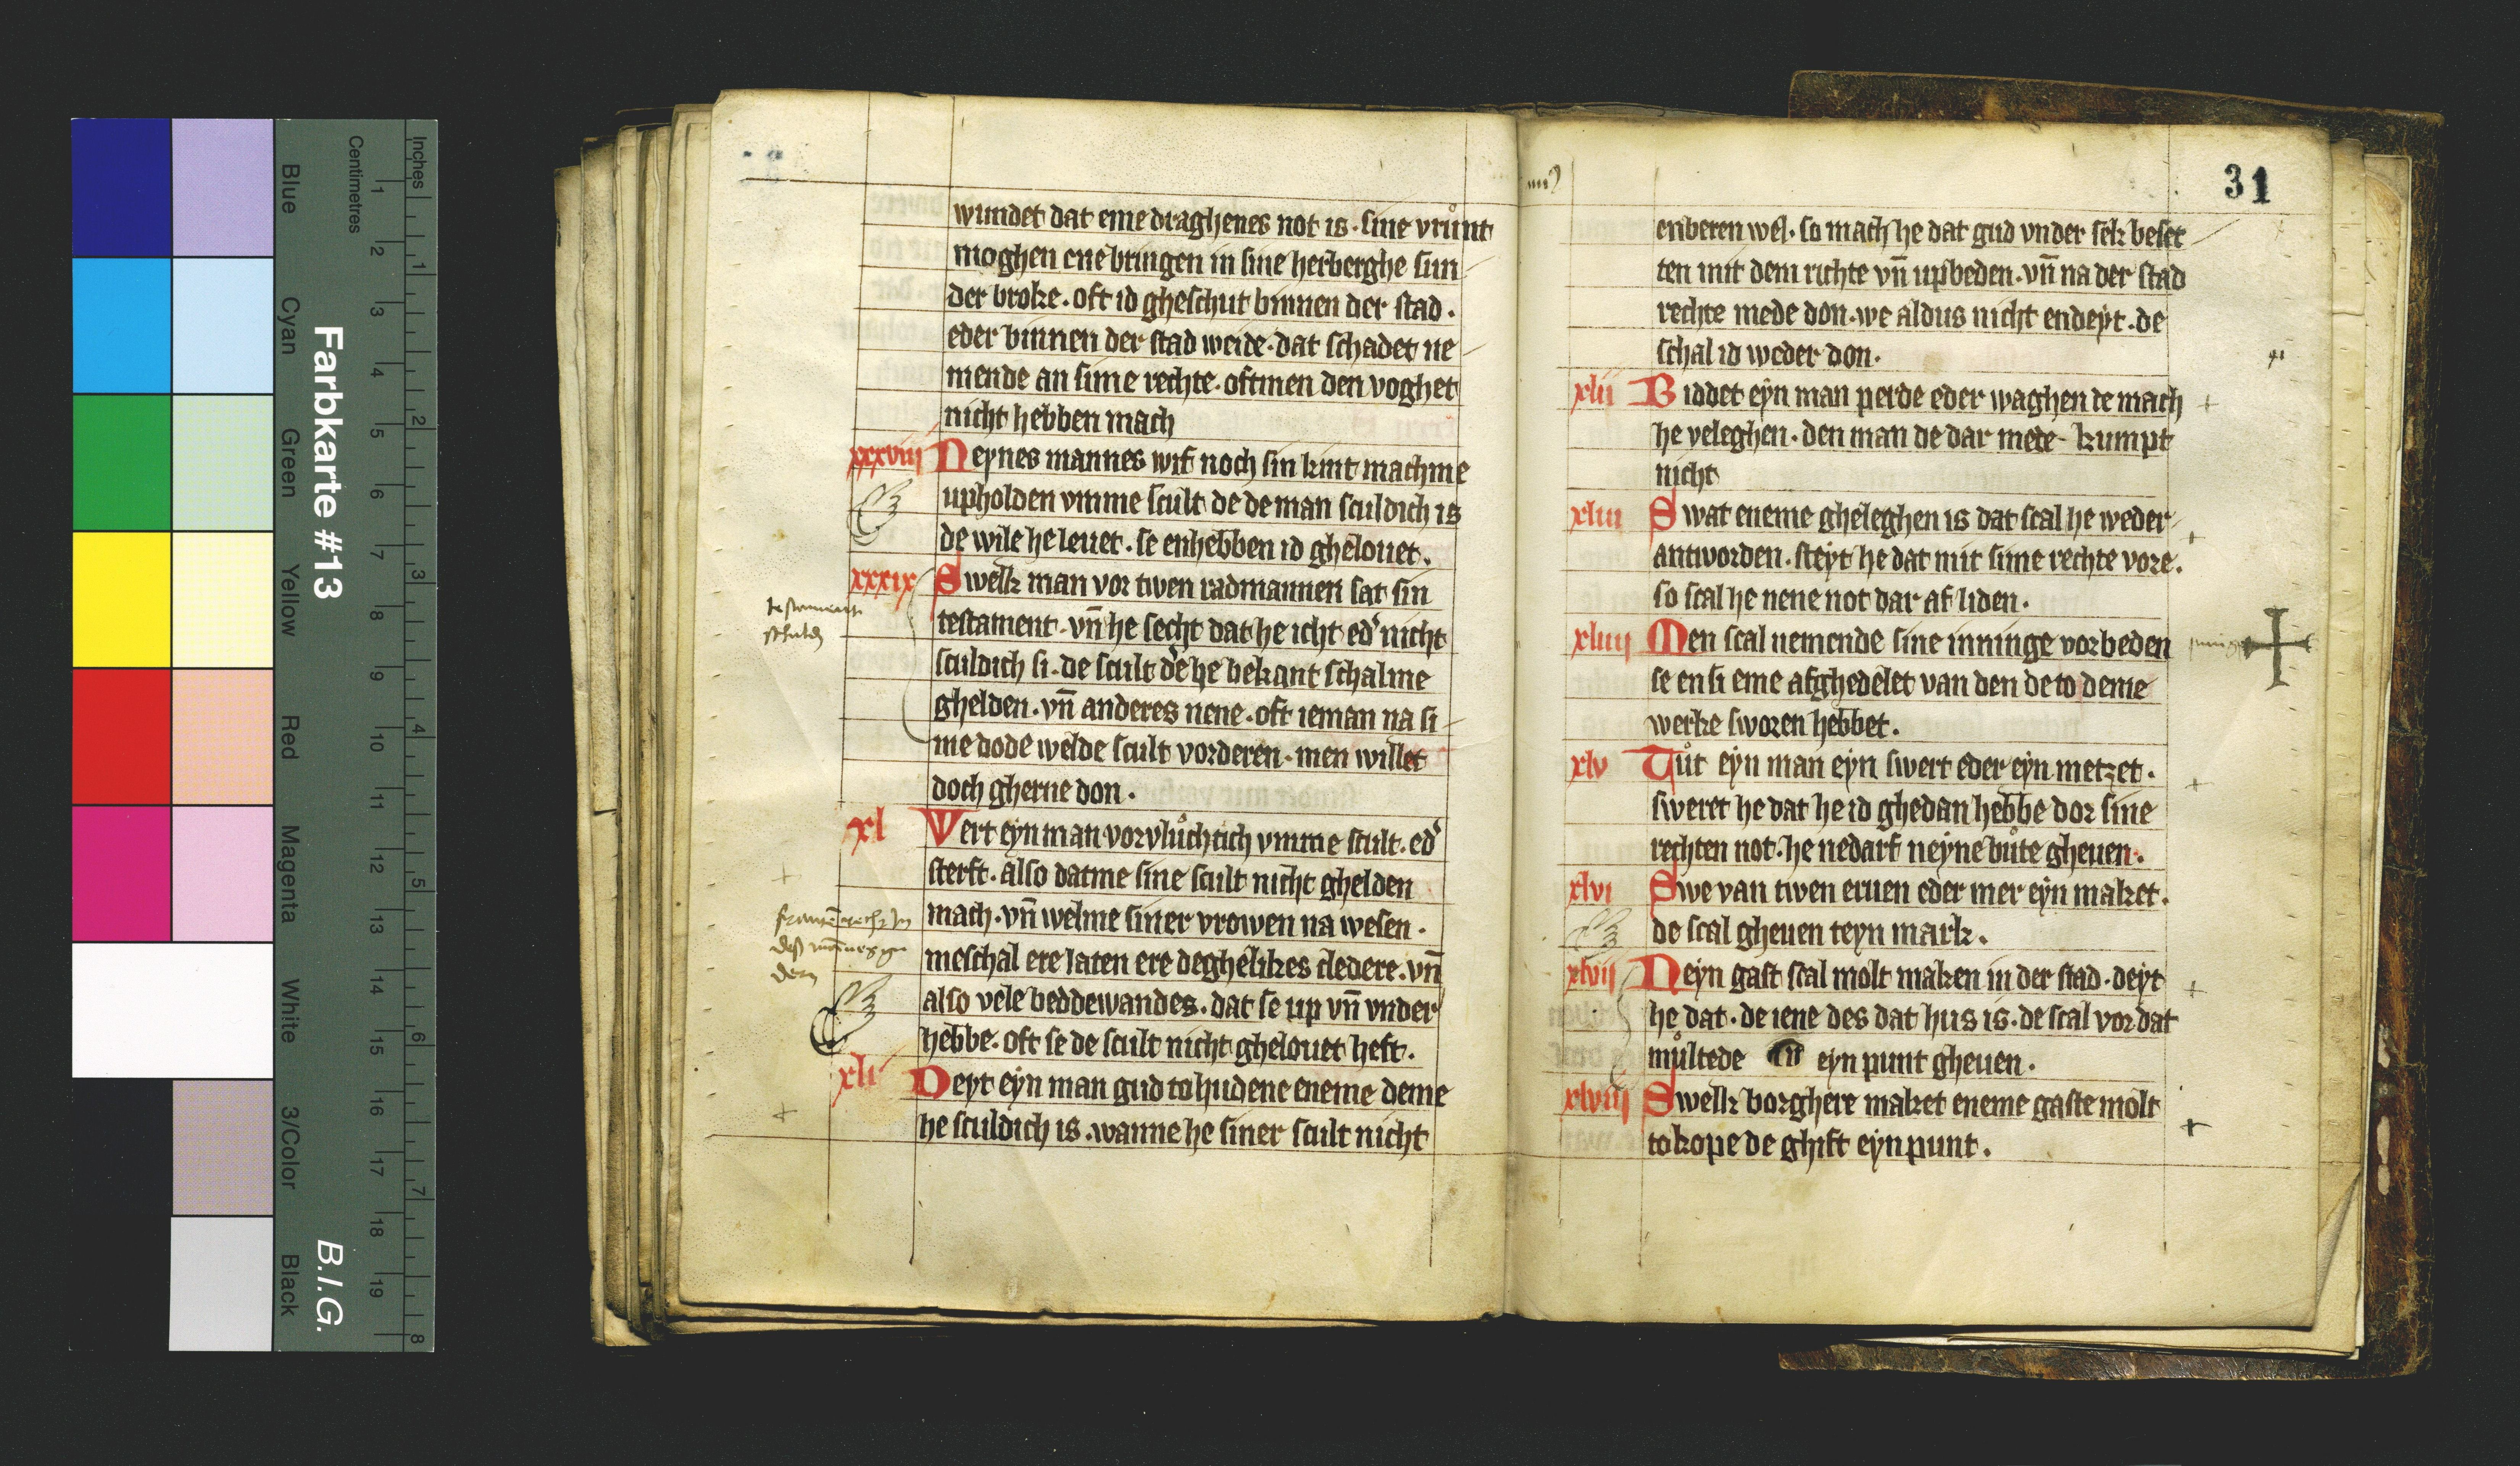 Blue
Cyan
Green
Yellow
Red
Magenta
White
3/Color
Black
Farbkarte #13
B.I.G.
Centimetres
1 2 3 4 5 6 7 8 9 10 11 12 13 14 15 16 17 18 19
Inches
1 2 3 4 5 6 7 8
wundet dat eme draghenes not is · sine vrůnt
moghen ene bringen in sine herberghe sun
der broke · oft id gheschut binnen der stad ·
eder binnen der stad weide · dat schadet ne
mende an sime rechte · oftmen den voghet
nicht hebben mach
xxxviij Neynes mannes wif noch sin kint machme
upholden vmme scult de de man sculdich is
de wile he leuet · se enhebben id ghelouet ·
xxxix Swelk man vor twen radmannen sat sin
testament
testament · vn̄ he secht dat he icht edʼ nicht
schuld
sculdich si · de scult de he bekant schalme
ghelden · vn̄ anderes nene · oft ieman na si
me dode welde scult vorderen · men willet
doch gherne don ·
xl Wert eyn man vorvlůchtich vmme scult · edʼ
sterft · also datme sine scult nicht ghelden
mach · vn̄ welme siner vrowen na wesen ·
meschal ere laten ere deghelikes cledere · vn̄
also vele beddewandes · dat se up vn̄ vnder
hebbe · oft se de scult nicht ghelouet heft ·
xli Deyt eyn man gud to hudene eneme deme
he sculdich is · wanne he siner scult nicht
31
enberen wel · so mach he dat gud vnder sek beset
ten mit dem richte vn̄ upbeden · vn̄ na der stad
rechte mede don · we aldus nicht endeyt · de
schal id weder don ·
xlii Biddet eyn man perde eder waghen de mach
he veleghen · den man de dar mede kumpt
nicht
xliii Swat eneme gheleghen is dat scal he weder
antworden · steyt he dat mit sime rechte vore ·
so scal he nene not dar af liden ·
xliiij Men scal nemende sine inninge vorbeden
se en si eme afghedelet van den de to deme
werke sworen hebbet ·
xlv Tůt eyn man eyn swert eder eyn metzet ·
sweret he dat he id ghedan hebbe dor sine
rechten not · he nedarf neyne bůte gheuen ·
xlvi Swe van twen eruen eder mer eyn maket ·
de scal gheuen teyn mark ·
xlvii Neyn gast scal molt maken in der stad · deyt
he dat · de iene des dat hus is · de scal vor dat
můltede eyn punt gheuen ·
xlviij Swelk borghere maket eneme gaste molt
to kope de ghift eyn punt ·